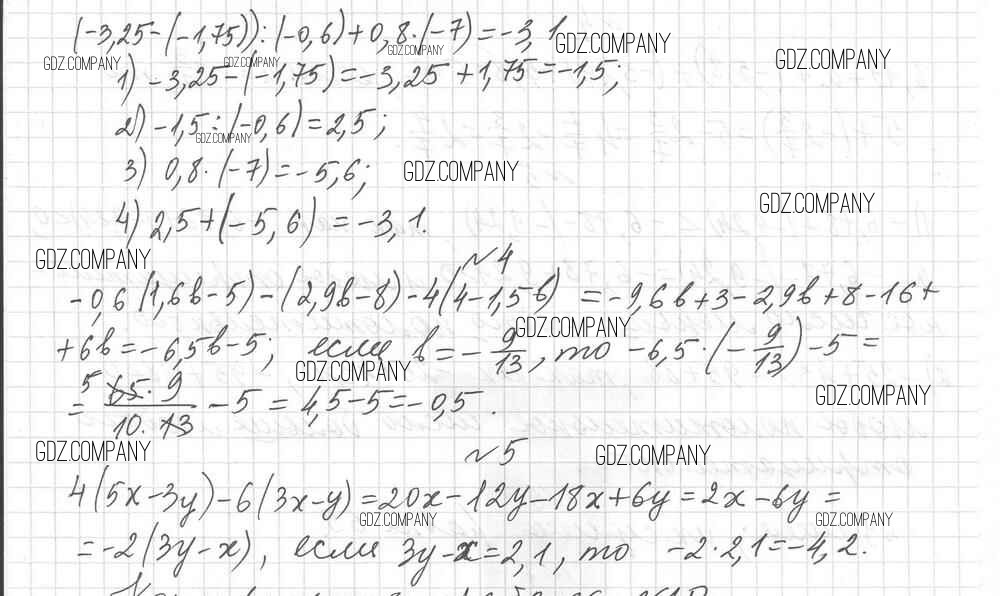 (-3,25-(-1,75)):(-0,6)+0,8·(-7)=-3,1
GDZ.COMPANY
GDZ.COMPANY
GDZ.COMPANY
GDZ.COMPANY
GDZ.COMPANY
1) -3,25-(-1,75)=-3,25+1,75=-1,5;
2) -1,5:(-0,6)=2,5;
GDZ.COMPANY
3) 0,8·(-7)=-5,6;
GDZ.COMPANY
GDZ.COMPANY
4) 2,5+(-5,6)=-3,1.
GDZ.COMPANY
№4
-0,6(1,6в-5)-(2,9в-8)-4(4-1,5в)=-9,6в+3-2,9в+8-16+
GDZ.COMPANY
+6в=-6,5в-5; если в=-9/13, то -6,5·(-9/13)-5=
GDZ.COMPANY
GDZ.COMPANY
=5 65·9/10·13-5=4,5-5=-0,5.
GDZ.COMPANY
№5
GDZ.COMPANY
4(5x-3y)-6(3x-y)=20x-12y-18x+6y=2x-6y=
GDZ.COMPANY
GDZ.COMPANY
=-2(3y-x), если 3y-x=2,1, то -2·2,1=-4,2.